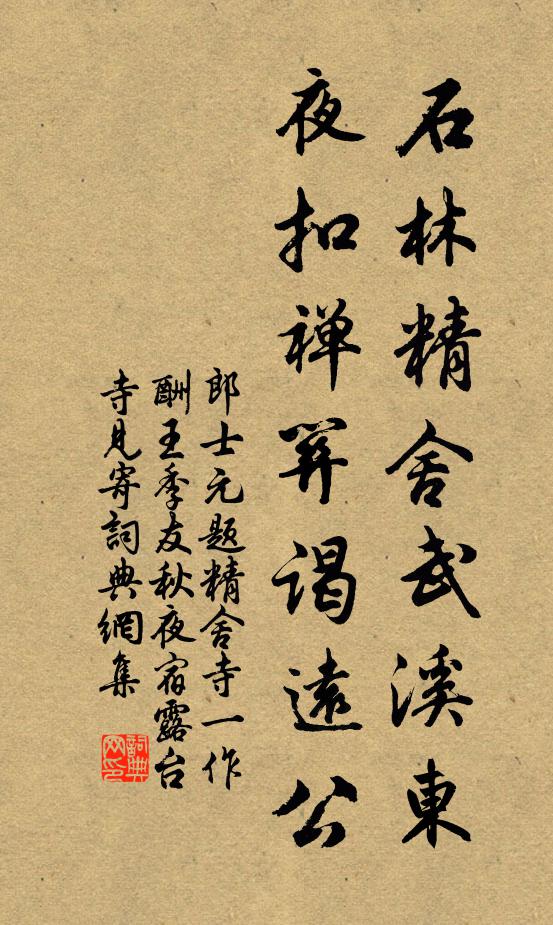 石林精舍武溪東
夜扣禅關谒遠公
郎士元题精舍寺一作
酬王季友秋夜宿露台
寺見寄詞典網集
詞典
网印